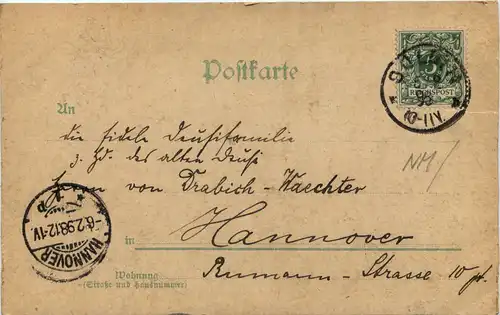 Postkarte
5
REICHSPOST
98
An
die fidele Deusifamilie
z. Hd. des alten Deusi
Herrn von Drabich-Waechter
in Hannover
Wohnung
(Straße und Hausnummer)
Rumann-Strasse 10 pt.
HANNOVER
6.2.98.12-1V.
NM/